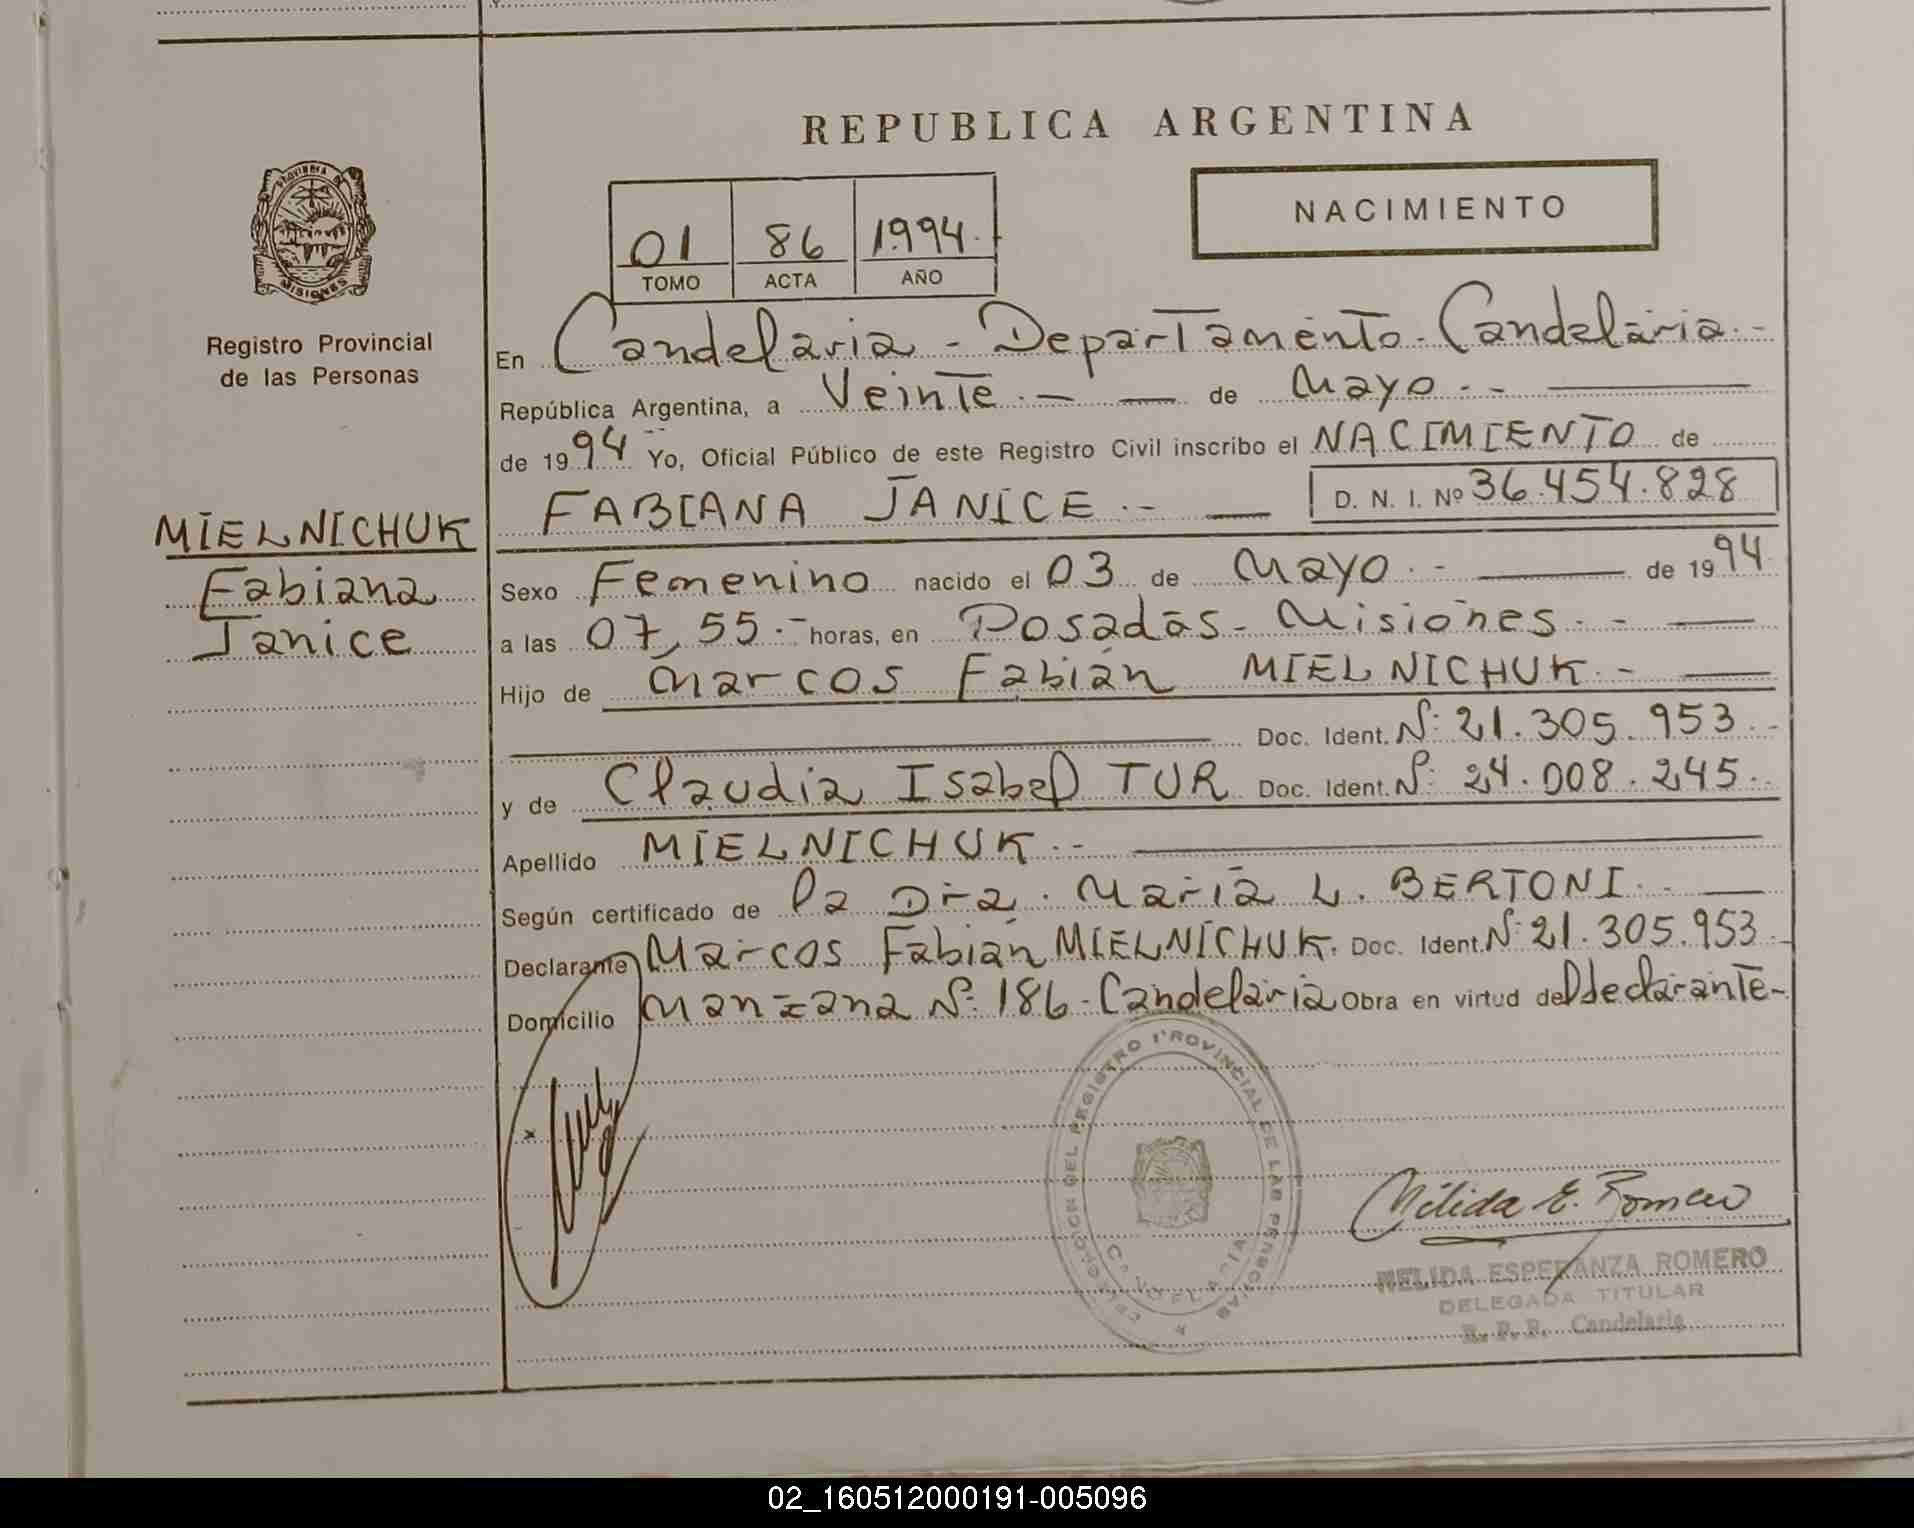 REPUBLICA ARGENTINA
PROVINCIA DE
MISIONES
Registro Provincial
de las Personas
NACIMIENTO
01 86 1994.-
TOMO ACTA AÑO
En Candelaria - Departamento - Candelaria.-
República Argentina, a Veinte.- — de Mayo.- —
de 1994.-- Yo, Oficial Público de este Registro Civil inscribo el NACIMIENTO de
FABIANA JANICE.- — D. N. I. Nº 36.454.828
MIELNICHUK
Fabiana
Janice
Sexo Femenino nacido el 03 de Mayo.- — de 1994.
a las 07,55.- horas, en Posadas - Misiones.- —
Hijo de Marcos Fabián MIELNICHUK.- —
Doc. Ident. Nº 21.305.953.-
y de Claudia Isabel TUR Doc. Ident. Nº 24.008.245.-
Apellido MIELNICHUK.- —
Según certificado de la Dra. María L. BERTONI.- —
Declarante Marcos Fabián MIELNICHUK. Doc. Ident. Nº 21.305.953.-
Domicilio Manzana Nº 186 - Candelaria Obra en virtud del declarante-
x
REGISTRO PROVINCIAL DE LAS PERSONAS
CANDELARIA
Nélida E. Romero
NELIDA ESPERANZA ROMERO
DELEGADA TITULAR
R. P. P. Candelaria
02_160512000191-005096